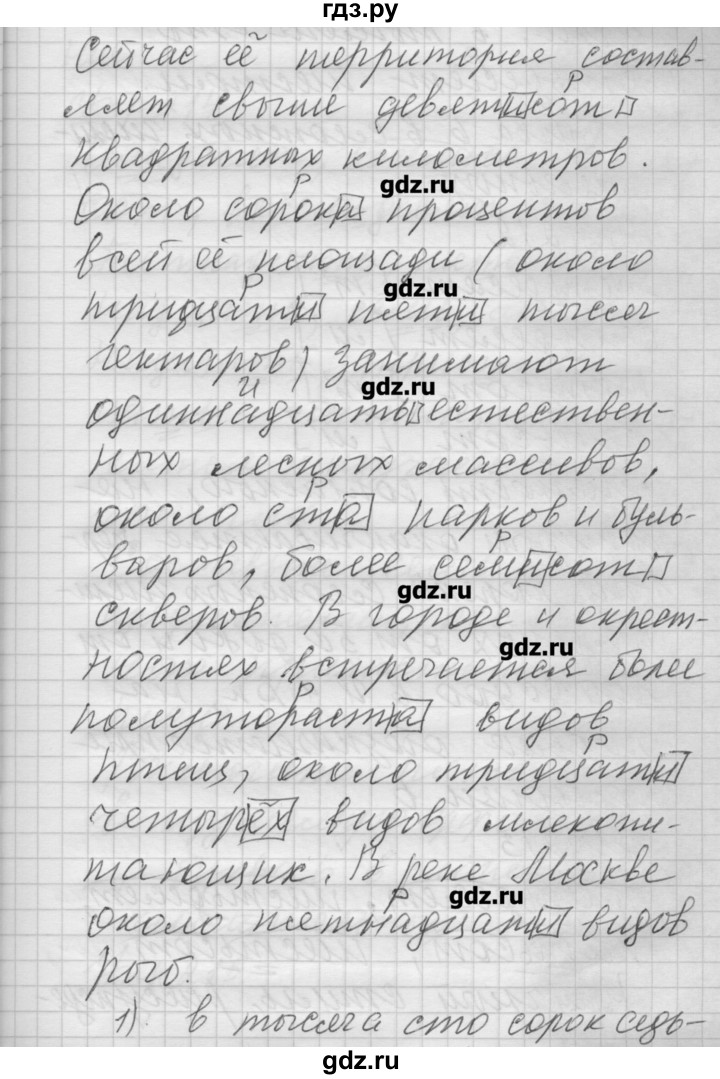 гдз.ру
Сейчас её территория состав-
р
ляет свыше девятисот
квадратных километров.
gdz.ru
р
Около сорока процентов
всей её площади (около
gdz.ru
р
тридцати пяти тысяч
гектаров) занимают
gdz.ru
и
одиннадцать естествен-
ных лесных массивов,
р
около ста парков и буль-
р
варов, более семисот
gdz.ru
скверов. В городе и окрест-
gdz.ru
ностях встречается более
р
полутораста видов
р
птиц, около тридцати
четырёх видов млекопи-
тающих. В реке Москве
gdz.ru
р
около пятнадцати видов
рыб.
1) в тысяча сто сорок седь-
gdz.ru